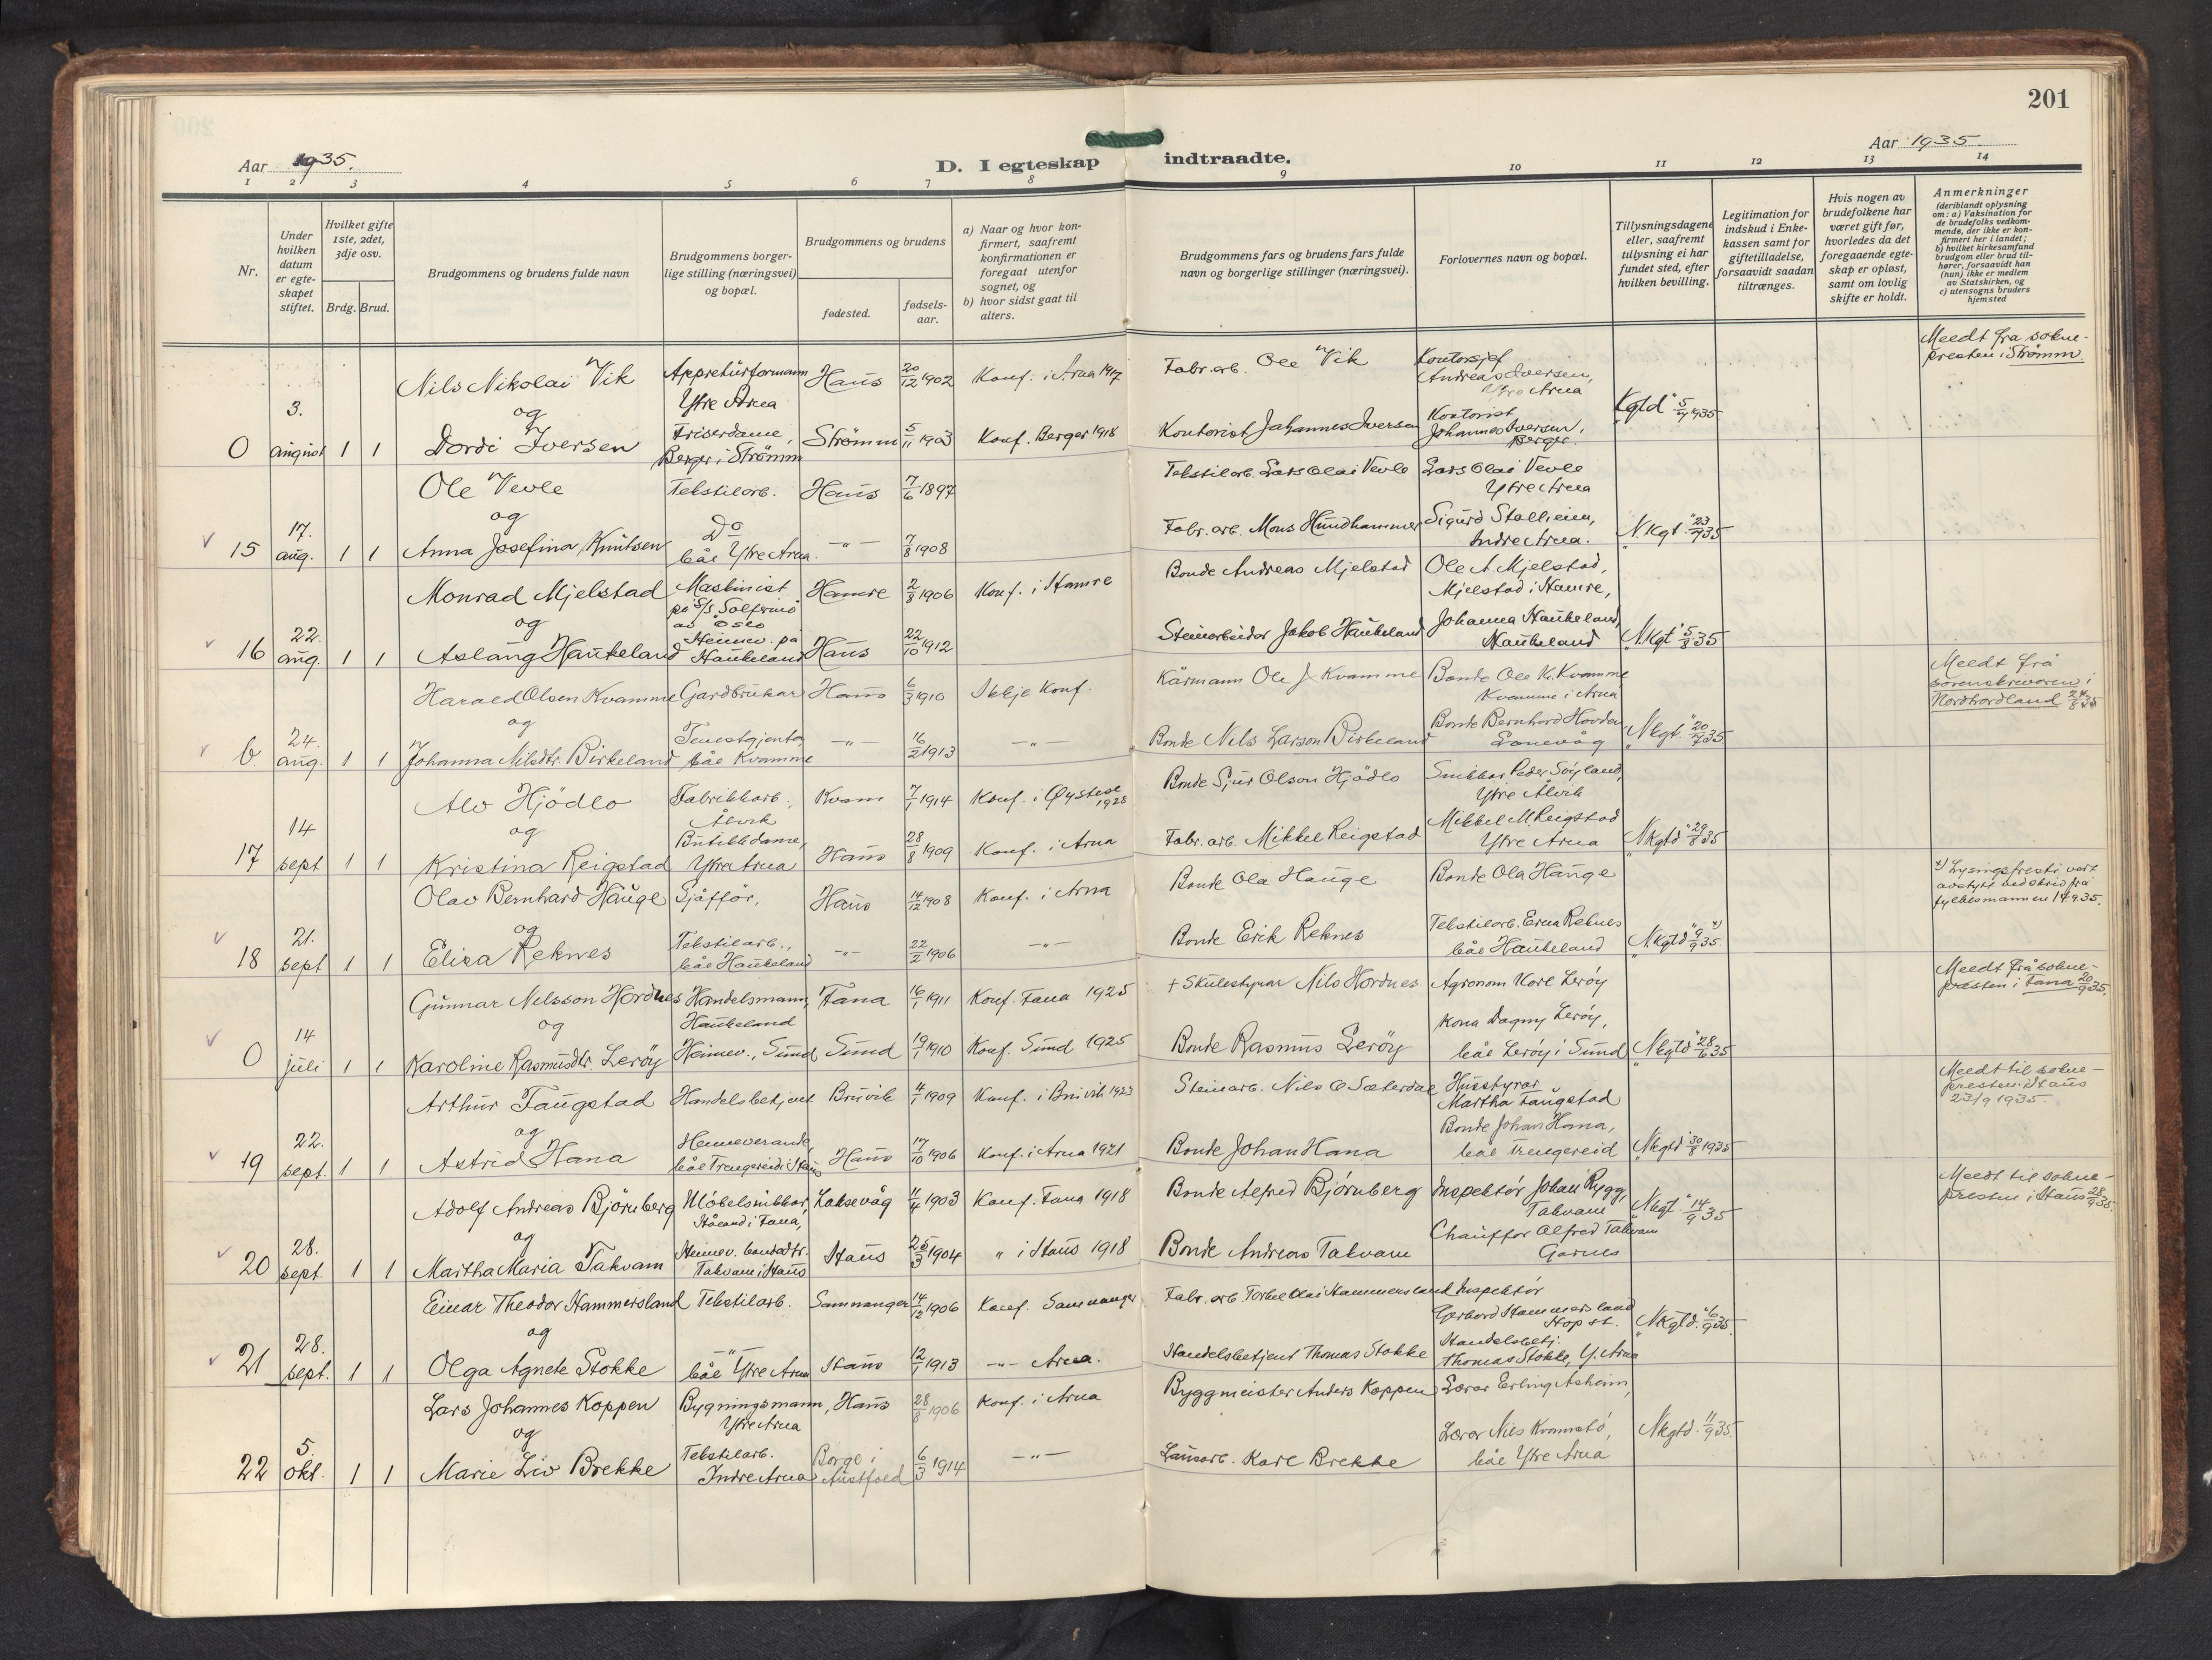 201
Aar 1935.
D. I egteskap indtraadte.
Aar 1935
1 2 3 4 5 6 7 8 9 10 11 12 13 14
Nr.
Under hvilken datum er egteskapet stiftet.
Hvilket gifte 1ste, 2det, 3dje osv.
Brdg. Brud.
Brudgommens og brudens fulde navn
Brudgommens borgerlige stilling (næringsvei) og bopæl.
Brudgommens og brudens
fødested.
fødselsaar.
a) Naar og hvor konfirmert, saafremt konfirmationen er foregaat utenfor sognet, og
b) hvor sidst gaat til alters.
Brudgommens fars og brudens fars fulde navn og borgerlige stillinger (næringsvei).
Forlovernes navn og bopæl.
Tillysningsdagene eller, saafremt tillysning ei har fundet sted, efter hvilken bevilling.
Legitimation for indskud i Enkekassen samt for giftetilladelse, forsaavidt saadan tiltrænges.
Hvis nogen av brudefolkene har været gift før, hvorledes da det foregaaende egteskap er opløst, samt om lovlig skifte er holdt.
Anmerkninger
(deriblandt oplysning om: a) Vaksination for de brudefolks vedkommende, der ikke er konfirmert her i landet; b) hvilket kirkesamfund brudgom eller brud tilhører, forsaavidt han (hun) ikke er medlem av Statskirken, og c) utensogns bruders hjemsted
Nils Nikolai Vik Appreturformann Ytre Arna Haus 20/12 1902 Konf. i Arna 1917 Fabr. arb. Ole Vik Kontorsjef Andreas Iversen, Ytre Arna Meldt fra soknepresten i Strømm.
og
0 3. august 1 1 Dordi Iversen Friserdame, Berger i Strømm Strømm 5/11 1903 Konf. Berger 1918 Kontorist Johannes Iversen Kontorist Johannes Iversen, Berger. Kgld 5/7 1935
Ole Vevle Tekstilarb. Haus 7/6 1897 Tekstilarb. Lars Olai Vevle Lars Olai Vevle Ytre Arna
og
15 17. aug. 1 1 Anna Josefina Knutsen Do båe Ytre Arna. -"- 7/8 1908 Fabr. arb. Mons Hundhammer Sigurd Stalheim, Indre Arna. N. Kgt. 23/7 35
Monrad Mjelstad Maskinist på S/S Solferino av Oslo Hamre 2/8 1906 Konf. i Hamre Bonde Andreas Mjelstad Ole A. Mjelstad, Mjelstad i Hamre,
og
16 22. aug. 1 1 Aslaug Haukeland Heimev. på Haukeland Haus 22/10 1912 Steinarbeidar Jakob Haukeland Johanna Haukeland, Haukeland N.Kgt 5/8 35
Harald Olsen Kvamme Gardbrukar Haus 6/3 1910 Ikkje Konf. Kårmann Ole J Kvamme Bonde Ole K. Kvamme Kvamme i Arna Meldt frå sorenskrivaren i Nordhordland 24/8 35
og
b. 24. aug. 1 1 Johanna Nilsdtr. Birkeland Tenestgjenta, båe Kvamme -"- 16/2 1913 -"- Bonde Nils Larson Birkeland Bonde Bernhard Hovden Lonevåg Nkgt. 20/7 35
Alv Hjødlo Fabrikkarb., Ålvik Kvam 7/1 1914 Konf. i Øystese 1928 Bonde Sjur Olson Hjødlo Snikkar Peder Soyland, Ytre Ålvik
og
17 14 sept 1 1 Kristina Reigstad Butikkdame, Ytre Arna Haus 28/8 1909 Konf. i Arna Fabr. arb. Mikkel Reigstad Mikkel M. Reigstad Ytre Arna Nkgtd 29/8 35
Olav Bernhard Hauge Sjåffør, Haus 14/12 1908 Konf. i Arna Bonde Ola Hauge Bonde Ola Hauge x) Lysingsfresti vart avstytt ved skriv frå fylkesmannen 14.9.35.
og
18 21. sept 1 1 Elisa Reknes Tekstilarb., båe Haukeland -"- 22/2 1906 -"- Bonde Erik Reknes Tekstilarb. Erna Reknes båe Haukeland N.kgtd 9/9 35. x)
Gunnar Nilsson Hordnes Handelsmann, Haukeland Fana 16/1 1911 Konf. Fana 1925 + Skulestyrar Nils Hordnes Agronom Karl Lerøy Meldt frå soknepresten i Fana 20/9 35.
og
0 14 juli 1 1 Karoline Rasmusdtr. Lerøy Heimev., Sund Sund 19/1 1910 Konf. Sund 1925 Bonde Rasmus Lerøy Kona Dagny Lerøy, båe Lerøy i Sund Nkgtd 28/6 35
Arthur Taugstad Handelsbetjent Bruvik 4/1 1909 Konf. i Bruvik 1923 Steinarb. Nils O Sæterdal Husstyrar Martha Taugstad Meldt til soknepresten i Haus 23/9 1935.
og
19 22. sept. 1 1 Astrid Hana Heimeverande, båe Trengereid i Haus Haus 17/10 1906 Konf. i Arna 1921 Bonde Johan Hana Bonde Johan Hana, båe Trengereid Nkgtd 30/8 1935
Adolf Andreas Bjørnberg Møbelsnikkar, Håland i Fana, Laksevåg 11/4 1903 Konf. Fana 1918 Bonde Alfred Bjørnberg Inspektør Johan Rygg, Takvam Nkgt. 14/9 35 Meldt til soknepresten i Haus 28/9 35.
og
20 28. sept. 1 1 Martha Maria Takvam Heimev. bondedtr. Takvam i Haus Haus 25/3 1904 " i Haus 1918 Bonde Andreas Takvam Chauffør Alfred Takvam Garnes
Einar Theodor Hammersland Tekstilarb. Samnanger 14/12 1906 Konf. Samnanger Fabr. arb. Torkel Olai Hammersland Inspektør Gerhard Hammersland Hop st. Nkgtd. 6/9 35.
og
21 28. sept. 1 1 Olga Agnete Stokke -"- båe Ytre Arna Haus 12/1 1913 -"- Arna. Handelsbetjent Thomas Stokke Handelsbetj. Thomas Stokke, Y. Arna
Lars Johannes Koppen Bygningsmann, Ytre Arna Haus 28/8 1906 Konf. i Arna Byggmeister Anders Koppen Lærar Erling Asheim,
og
22 5. okt. 1 1 Marie Liv Brekke Tekstilarb. Indre Arna Borge i Austfold 6/3 1914 -"- Lausarb. Karl Brekke Lærar Nils Kvamstø, båe Ytre Arna Nkgtd. 11/9 35.